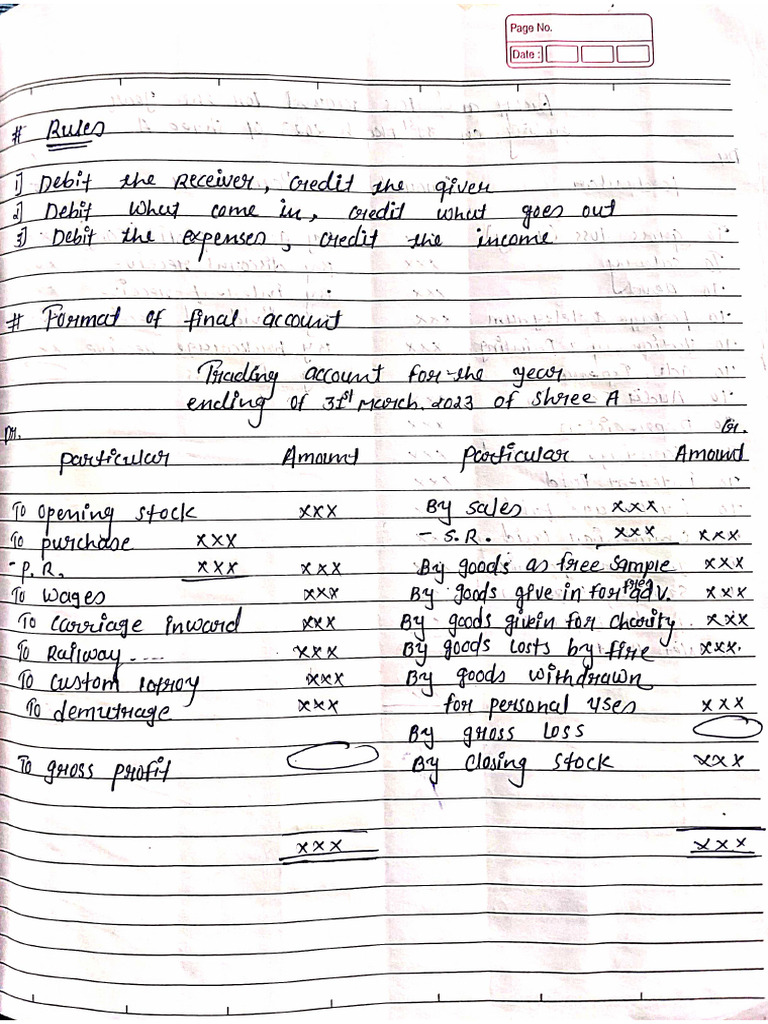 Page No.
Date :
# Rules
1] Debit the Receiver, credit the giver
2] Debit what come in, credit what goes out
3] Debit the expenses, credit the income
# Format of final account
Trading account for the year
ending of 31st March. 2023 of Shree A
Dr. Cr.
particular Amount particular Amount
To opening stock xxx By sales xxx
To purchase xxx - S.R. xxx xxx
- P.R. xxx xxx By goods as free sample xxx
To wages xxx By goods give in for free adv. xxx
To carriage inward xxx By goods givin for charity xxx
To Railway.... xxx By goods losts by fire xxx.
To custom xxx By goods withdrawn
To demutrage xxx for personal uses xxx
By gross loss
To gross profit By closing stock xxx
xxx xxx